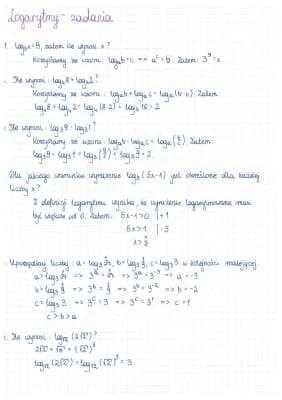 Logarytmy - zadania
1. log₃x = 9, zatem ile wynosi x?
Korzystamy ze wzoru: logₐb = c => aᶜ = b. Zatem: 3⁹ = x
. Ile wynosi: log₄8 + log₄2?
Korzystamy ze wzoru: logₐb + logₐc = logₐ(b·c). Zatem:
log₄8 + log₄2 = log₄(8·2) = log₄16 = 2
. Ile wynosi: log₃9 - log₃1?
Korzystamy ze wzoru: logₐb - logₐc = logₐ(b/c). Zatem:
log₃9 - log₃1 = log₃(9/1) = log₃9 = 2
Dla jakiego warunku wyrażenie log₃(5x-1) jest określone dla każdej
liczby x?
Z definicji logarytmu wynika, że wyrażenie logarytmowane musi
być większe od 0. Zatem: 5x-1>0 |+1
5x>1 |:5
x>1/5
. Uporządkuj liczby: a = log₃ 1/27, b = log₃ 1/9, c = log₃3 w kolejności malejącej.
a = log₃ 1/27 => 3ᵃ = 1/27 => 3ᵃ = 3⁻³ => a = -3
b = log₃ 1/9 => 3ᵇ = 1/9 => 3ᵇ = 3⁻² => b = -2
c = log₃3 => 3ᶜ = 3 => 3ᶜ = 3¹ => c = 1
c > b > a
. Ile wynosi: log√2 (2√2)?
2√2 = √8 = (√2)³
log√2 (2√2) = log√2 (√2)³ = 3